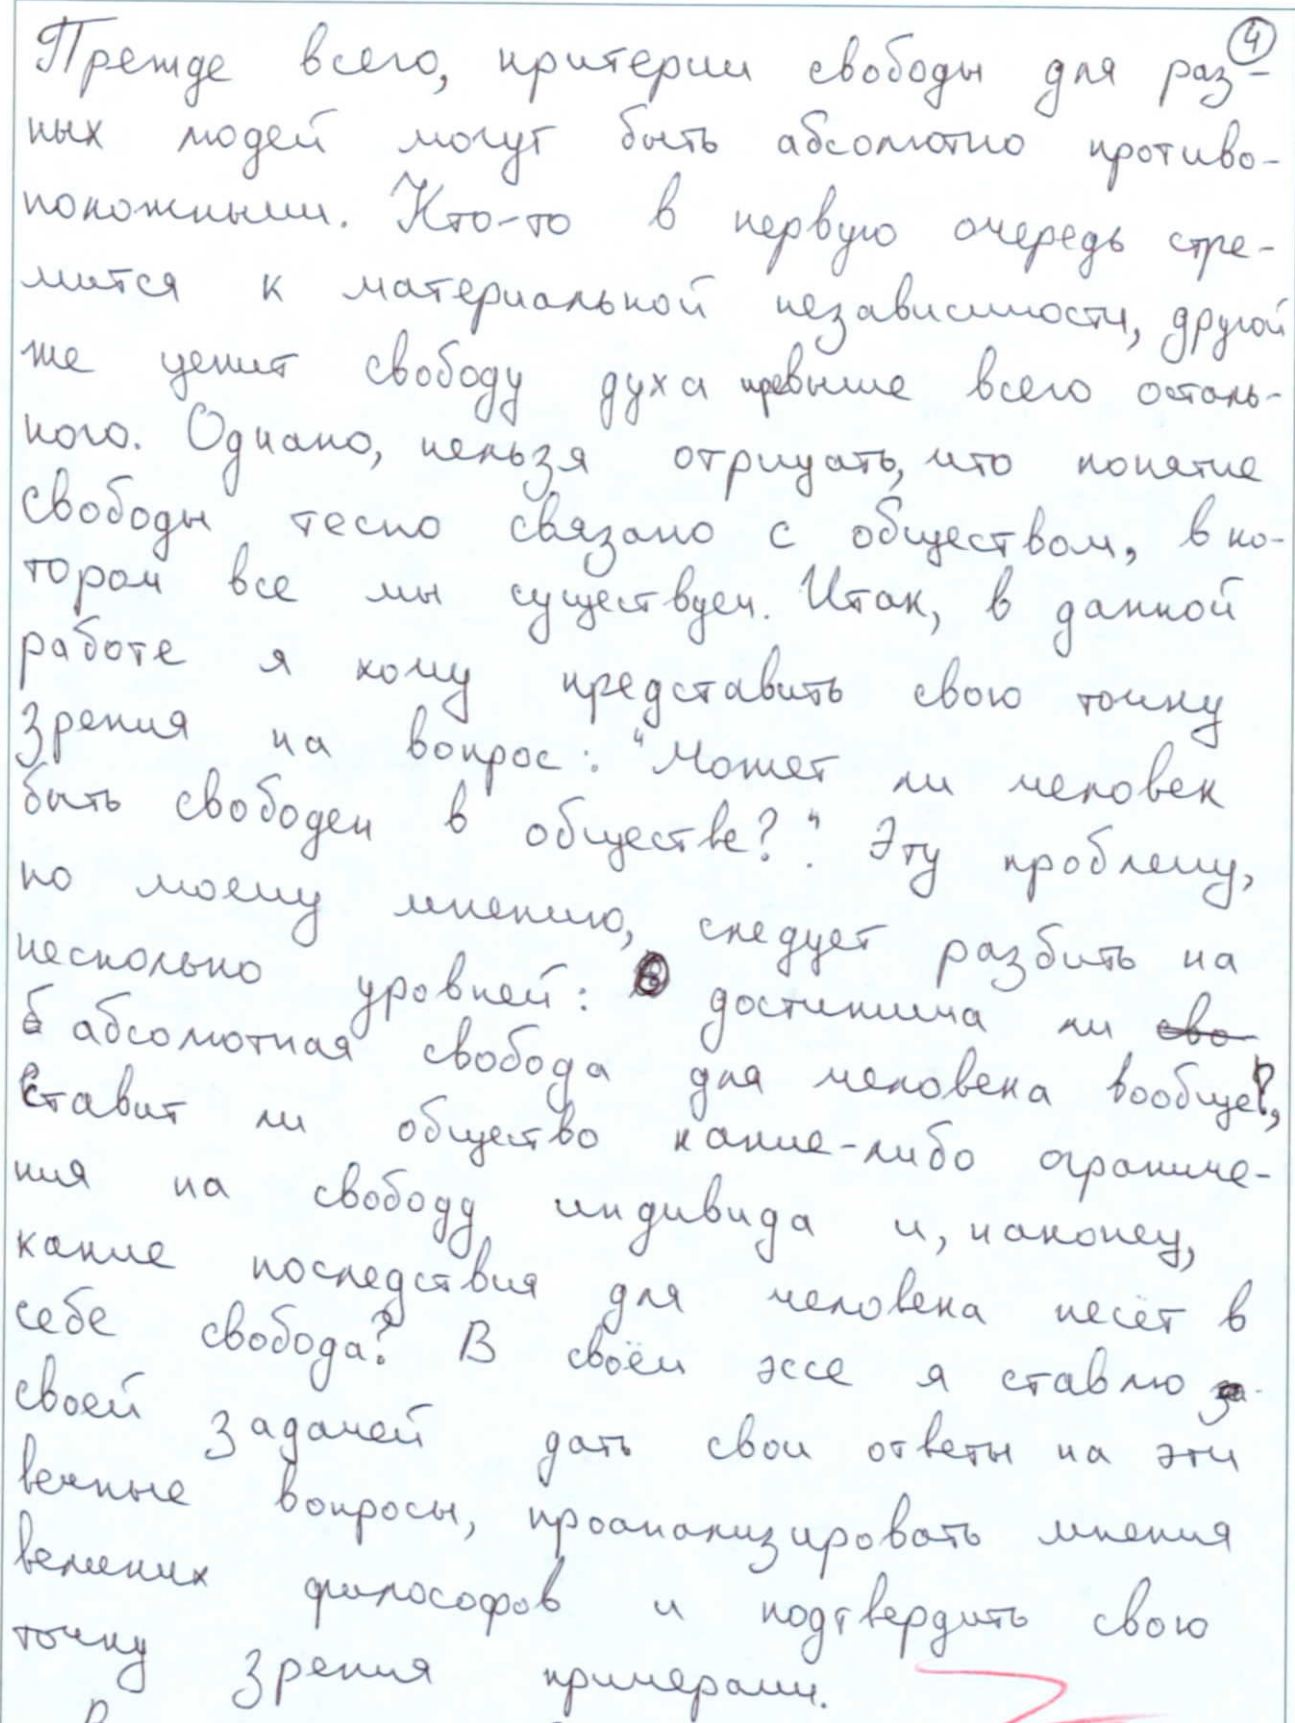 4
Прежде всего, критерии свободы для раз-
ных людей могут быть абсолютно противо-
положными. Кто-то в первую очередь стре-
мится к материальной независимости, другой
же ценит свободу духа превыше всего осталь-
ного. Однако, нельзя отрицать, что понятие
свободы тесно связано с обществом, в ко-
тором все мы существуем. Итак, в данной
работе я хочу представить свою точку
зрения на вопрос: "Может ли человек
быть свободен в обществе?". Эту проблему,
по моему мнению, следует разбить на
несколько уровней: достижима ли сво
абсолютная свобода для человека вообще?,
Ставит ли общество какие-либо ограниче-
ния на свободу индивида и, наконец,
какие последствия для человека несёт в
себе свобода? В своём эссе я ставлю
своей задачей дать свои ответы на эти
вечные вопросы, проанализировать мнения
великих философов и подтвердить свою
точку зрения примерами.